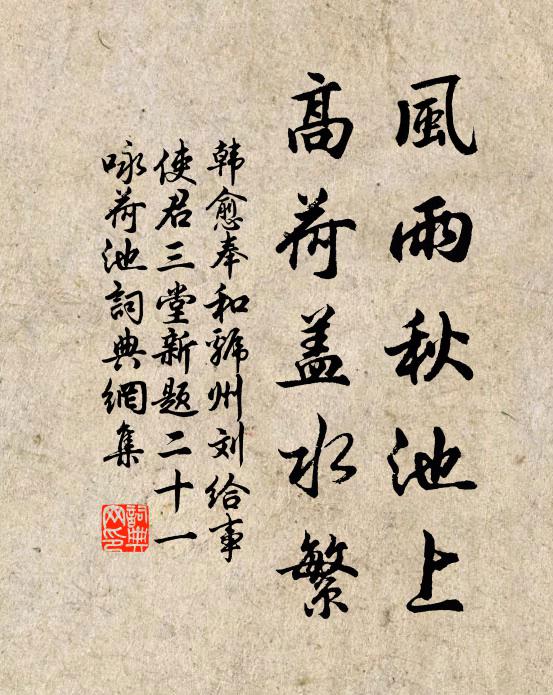 風雨秋池上
高荷蓋水繁
韩愈奉和虢州刘给事
使君三堂新题二十一
咏荷池詞典網集
詞典网印